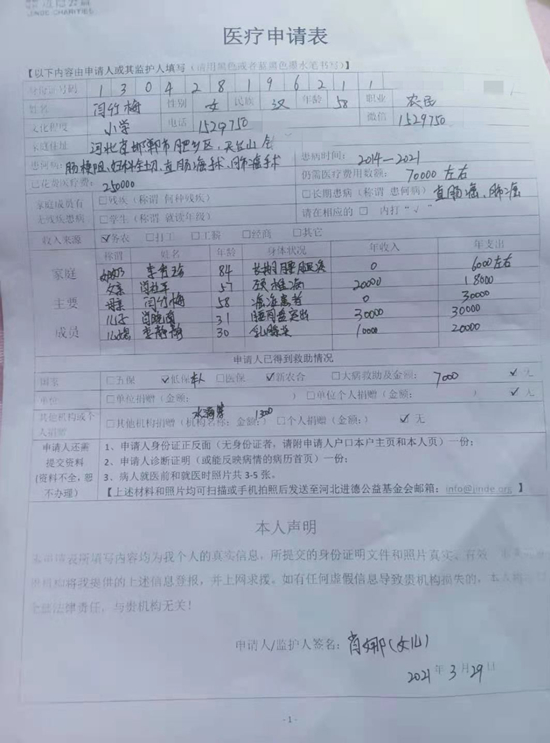 进德公益
JINDE CHARITIES
医疗申请表
【以下内容由申请人或其监护人填写（请用黑色或者蓝黑色墨水笔书写）】
身份证号码 1 3 0 4 2 8 1 9 6 2 1 1
姓名 闫竹梅 性别 女 民族 汉 年龄 58 职业 农民
文化程度 小学 电话 1529750 微信 1529750
家庭住址 河北省邯郸市肥乡区,天台山
患何病: 肠梗阻、妇科全切、直肠癌手术、肺癌手术 患病时间: 2014—2021
已花费医疗费: 250000 仍需医疗费用数额: 70000 左右
家庭成员有无残疾患病 □残疾（称谓 何种残疾） □长期患病（称谓 患何病） 直肠癌、肺癌
□学生（称谓 就读年级） 请在相应的 □ 内打"√"
收入来源 √务农 □打工 □工薪 □经商 □其它
家庭主要成员 称谓 姓名 年龄 身体状况 年收入 年支出
奶奶 84 0 6000左右
父亲 57 颈椎病 20000 18000
母亲 闫竹梅 58 癌症患者 0 30000
儿子 31 腰间盘突出 30000 30000
儿媳 30 10000 20000
申请人已得到救助情况
国家 □五保 √低保 本人 □医保 √新农合 □大病救助及金额: 7000 √无
单位 □单位捐赠（金额: ） □单位个人捐赠（金额: ） √无
其他机构或个人捐赠 □其他机构捐赠（机构名称: 水滴筹 金额: 1300 □个人捐赠（金额:） √无
申请人还需提交资料（资料不全，恕不办理）
1、申请人身份证正反面（无身份证者，请附申请人户口本户主页和本人页）一份;
2、申请人诊断证明（或能反映病情的病历首页）一份;
3、病人就医前和就医时照片共 3-5 张。
【上述材料和照片均可扫描或手机拍照后发送至河北进德公益基金会邮箱: info@jinde.org】
本人声明
本申请表所填写内容均为我个人的真实信息，所提交的身份证明文件和照片真实、有效
贵机构将我提供的上述信息登报，并上网求援，如有任何虚假信息导致贵机构损失的，本人
上述法律责任，与贵机构无关！
申请人/监护人签名: 肖娜(女儿)
2021 年 3 月 29 日
- 1 -